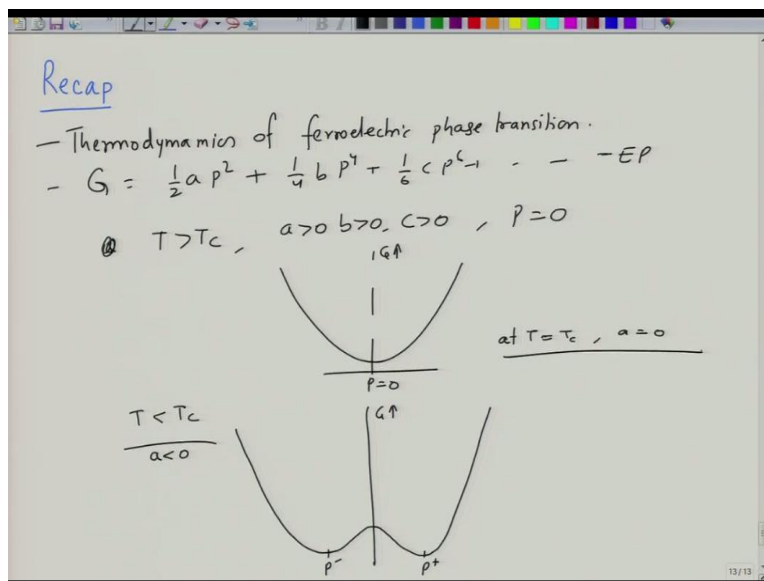 Recap
- Thermodynamics of ferroelectric phase transition.
- G = 1/2 a p² + 1/4 b p⁴ + 1/6 c p⁶ + . - - -EP
@ T>Tc, a>0 b>0, c>0, P=0
G↑
at T=Tc, a=0
P=0
T<Tc
a<0
G↑
p- p+
13/13